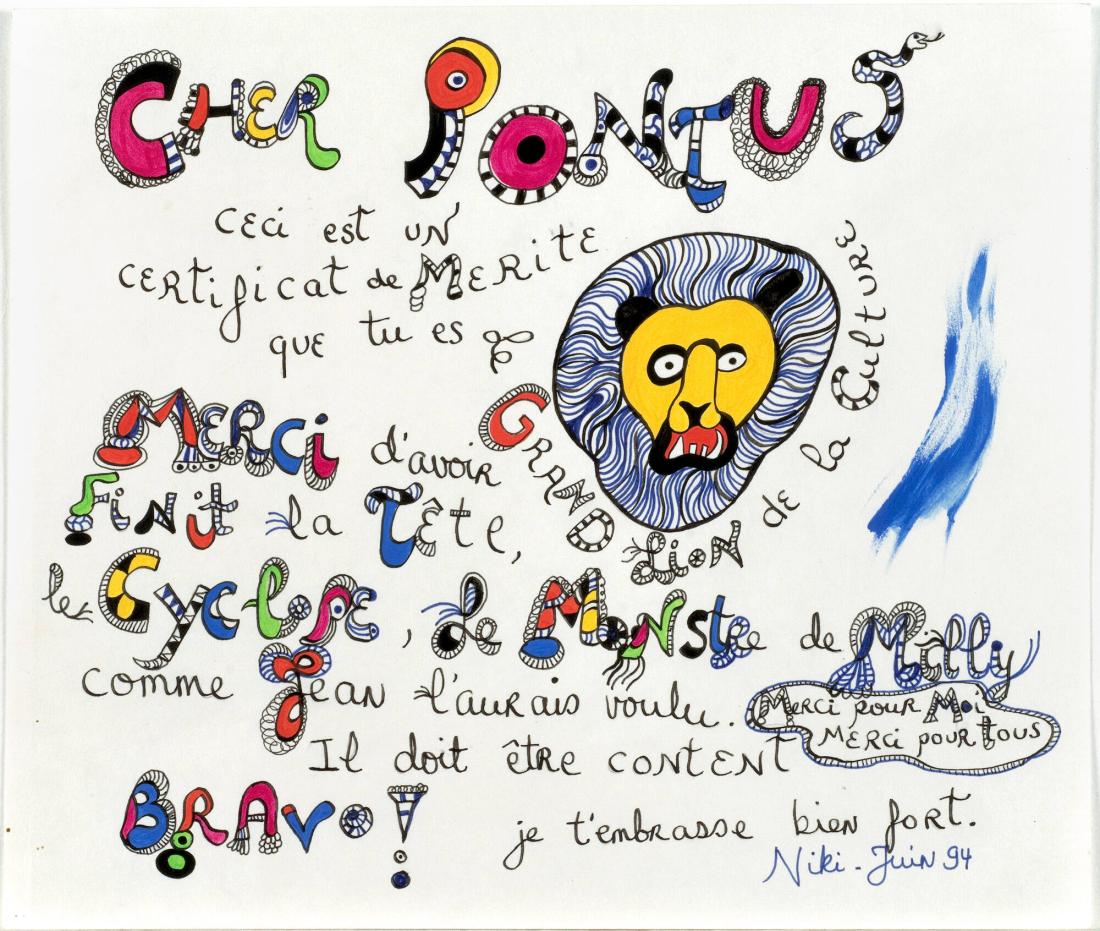 CHER PONTUS
CECI EST UN
CERTIFICAT de MERITE
QUE tu es
GRAND LION de la CULTURE
MERCI d'avoir
FINIT la TÊTE,
le CYCLOPE, Le MONSTRE de Milly
comme Jean l'aurais voulu.
MERCI pour Moi
MERCI pour tous
Il doit être CONTENT
BRAVO! je t'embrasse bien fort.
Niki - Juin 94